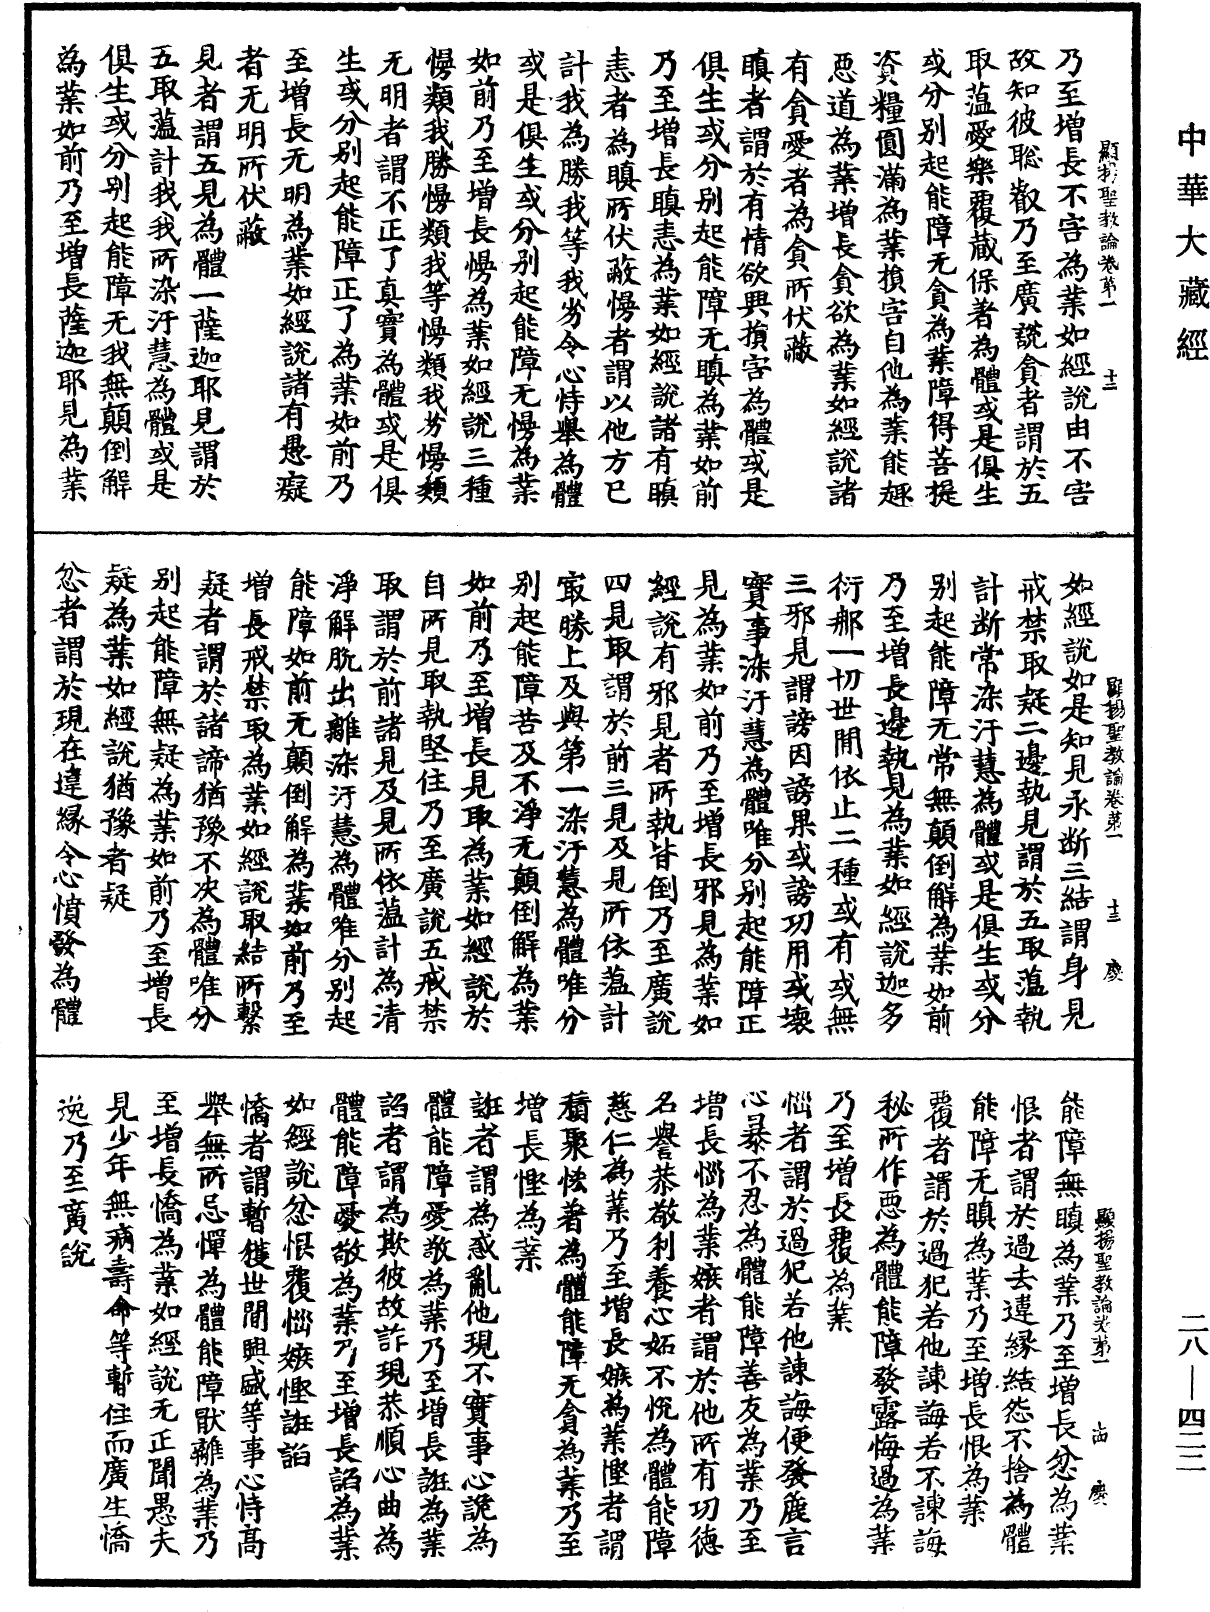 中華大藏經
顯揚聖教論卷第一 十二
乃至增長不害為業如經說由不害
故知彼聡叡乃至廣說貪者謂於五
取蕰愛樂覆蔵保著為體或是俱生
或分别起能障无貪為業障得菩提
資糧圓滿為業損害自他為業能趣
惡道為業增長貪欲為業如經說諸
有貪愛者為貪所伏蔽
瞋者謂於有情欲興損害為體或是
俱生或分别起能障无瞋為業如前
乃至增長瞋恚為業如經說諸有瞋
恚者為瞋所伏蔽慢者謂以他方已
計我為勝我等我劣令心恃舉為體
或是俱生或分别起能障无慢為業
如前乃至增長慢為業如經說三種
慢類我勝慢類我等慢類我劣慢類
无明者謂不正了真實為體或是俱
生或分别起能障正了為業如前乃
至增長无明為業如經說諸有愚癡
者无明所伏蔽
見者謂五見為體一薩迦耶見謂於
五取蕰計我我所染汙慧為體或是
俱生或分别起能障无我無顛倒解
為業如前乃至增長薩迦耶見為業
顯揚聖教論卷第一 十三 慶
如經說如是知見永断三結謂身見
戒禁取疑二邊執見謂於五取蕰執
計断常染汙慧為體或是俱生或分
别起能障无常無顛倒解為業如前
乃至增長邊執見為業如經說迦多
衍那一切世間依止二種或有或無
三邪見謂謗因謗果或謗功用或壞
實事染汙慧為體唯分别起能障正
見為業如前乃至增長邪見為業如
經說有邪見者所執皆倒乃至廣說
四見取謂於前三見及見所依蕰計
冣勝上及與第一染汙慧為體唯分
别起能障苦及不淨无顛倒解為業
如前乃至增長見取為業如經說於
自所見取執堅住乃至廣說五戒禁
取謂於前諸見及見所依蕰計為清
淨解脫出離染汙慧為體唯分别起
能障如前无顛倒解為業如前乃至
增長戒禁取為業如經說取結所繫
疑者謂於諸諦猶豫不决為體唯分
别起能障無疑為業如前乃至增長
疑為業如經說猶豫者疑
忿者謂於現在違縁令心憤發為體
顯揚聖教論卷第一 十四 慶
能障無瞋為業乃至增長忿為業
恨者謂於過去違縁結怨不捨為體
能障无瞋為業乃至增長恨為業
覆者謂於過犯若他諫誨若不諫誨
秘所作惡為體能障發露悔過為業
乃至增長覆為業
惱者謂於過犯若他諫誨便發麁言
心暴不忍為體能障善友為業乃至
增長惱為業嫉者謂於他所有功徳
名譽恭敬利養心妬不悅為體能障
慈仁為業乃至增長嫉為業慳者謂
積聚恡著為體能障无貪為業乃至
增長慳為業
誑者謂為惑亂他現不實事心詭為
體能障愛敬為業乃至增長誑為業
諂者謂為欺彼故詐現恭順心曲為
體能障愛敬為業乃至增長諂為業
如經說忿恨覆惱嫉慳誑諂
憍者謂暫獲世間興盛等事心恃髙
舉無所忌憚為體能障猒離為業乃
至增長憍為業如經說无正聞愚夫
見少年無病壽命等暫住而廣生憍
逸乃至廣說
二八—四二二